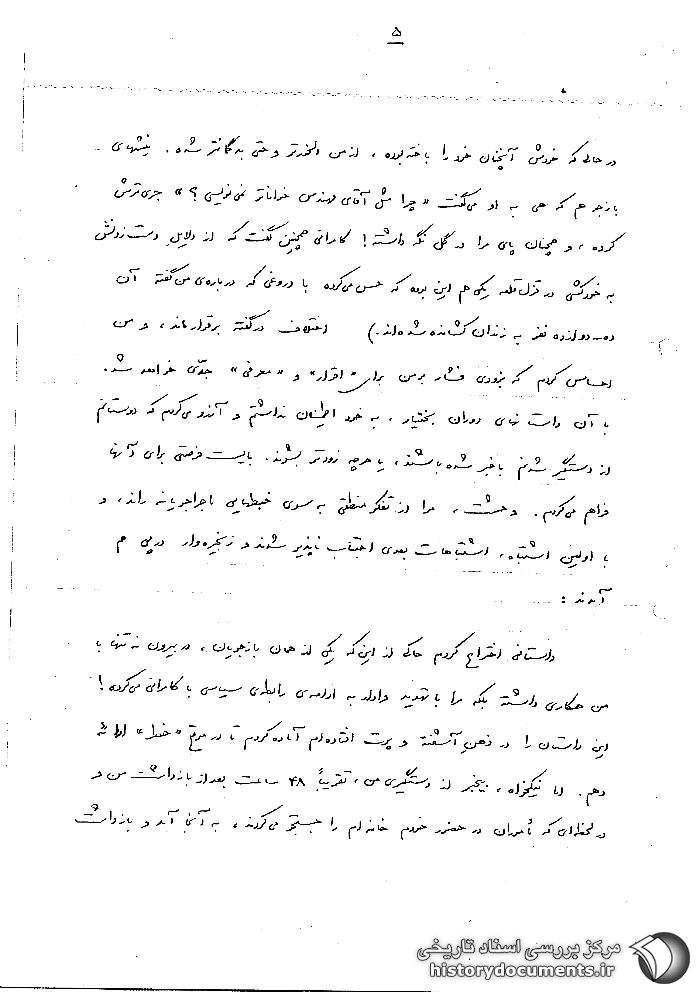 ۵
در حالی که خودش آنچنان خود را باخته بوده، از من دلخورتر و حتی بدگمانتر شده. نیشهای
بازجو هم که هی به او می‌گفت «چرا مثل آقای مهندس خواناتر نمی‌نویسی؟» جری‌ترش
کرده، و همچنان پای مرا در گل نگه داشته! کامرانی همچنین گفت که از دلایل دست زدنش
به خودکشی در قزل‌قلعه یکی هم این بوده که حس می‌کرده با دروغی که درباره‌ی من گفته آن
ده-دوازده نفر به زندان کشانده شده‌اند.) اختلاف در گفته برقرار ماند، و من
احساس کردم که بزودی فشار بر من برای «اقرار» و «معرفی» جدّی خواهد شد.
با آن داستانهای دوران بختیار، به خود اطمینان نداشتم و آرزو می‌کردم که دوستانم
از دستگیر شدنم باخبر شده باشند، یا هرچه زودتر بشوند. بایست فرصتی برای آنها
فراهم می‌کردم. وحشت، مرا از تفکر منطقی به سوی خبطهایی ماجراجویانه راند، و
با اولین اشتباه، اشتباهات بعدی اجتناب ناپذیر شدند و زنجیره‌وار در پی هم
آمدند:
داستانی اختراع کردم حاکی از این که یکی از همان بازجویان، در بیرون نه تنها با
من همکاری داشته بلکه مرا با تهدید وادار به ادامه‌ی رابطه‌ی سیاسی با کامرانی می‌کرده!
این داستان را در ذهنِ آشفته و پرت افتاده‌ام آماده کردم تا در موقع «خطر» ارائه
دهم. اما نیکخواه، بیخبر از دستگیری من، تقریباً ۴۸ ساعت بعد از بازداشت من و
در لحظه‌ای که مأموران در حضور خودم خانه‌ام را جستجو می‌کردند، به آنجا آمد و بازداشت
مرکز بررسی اسناد تاریخی
historydocuments.ir